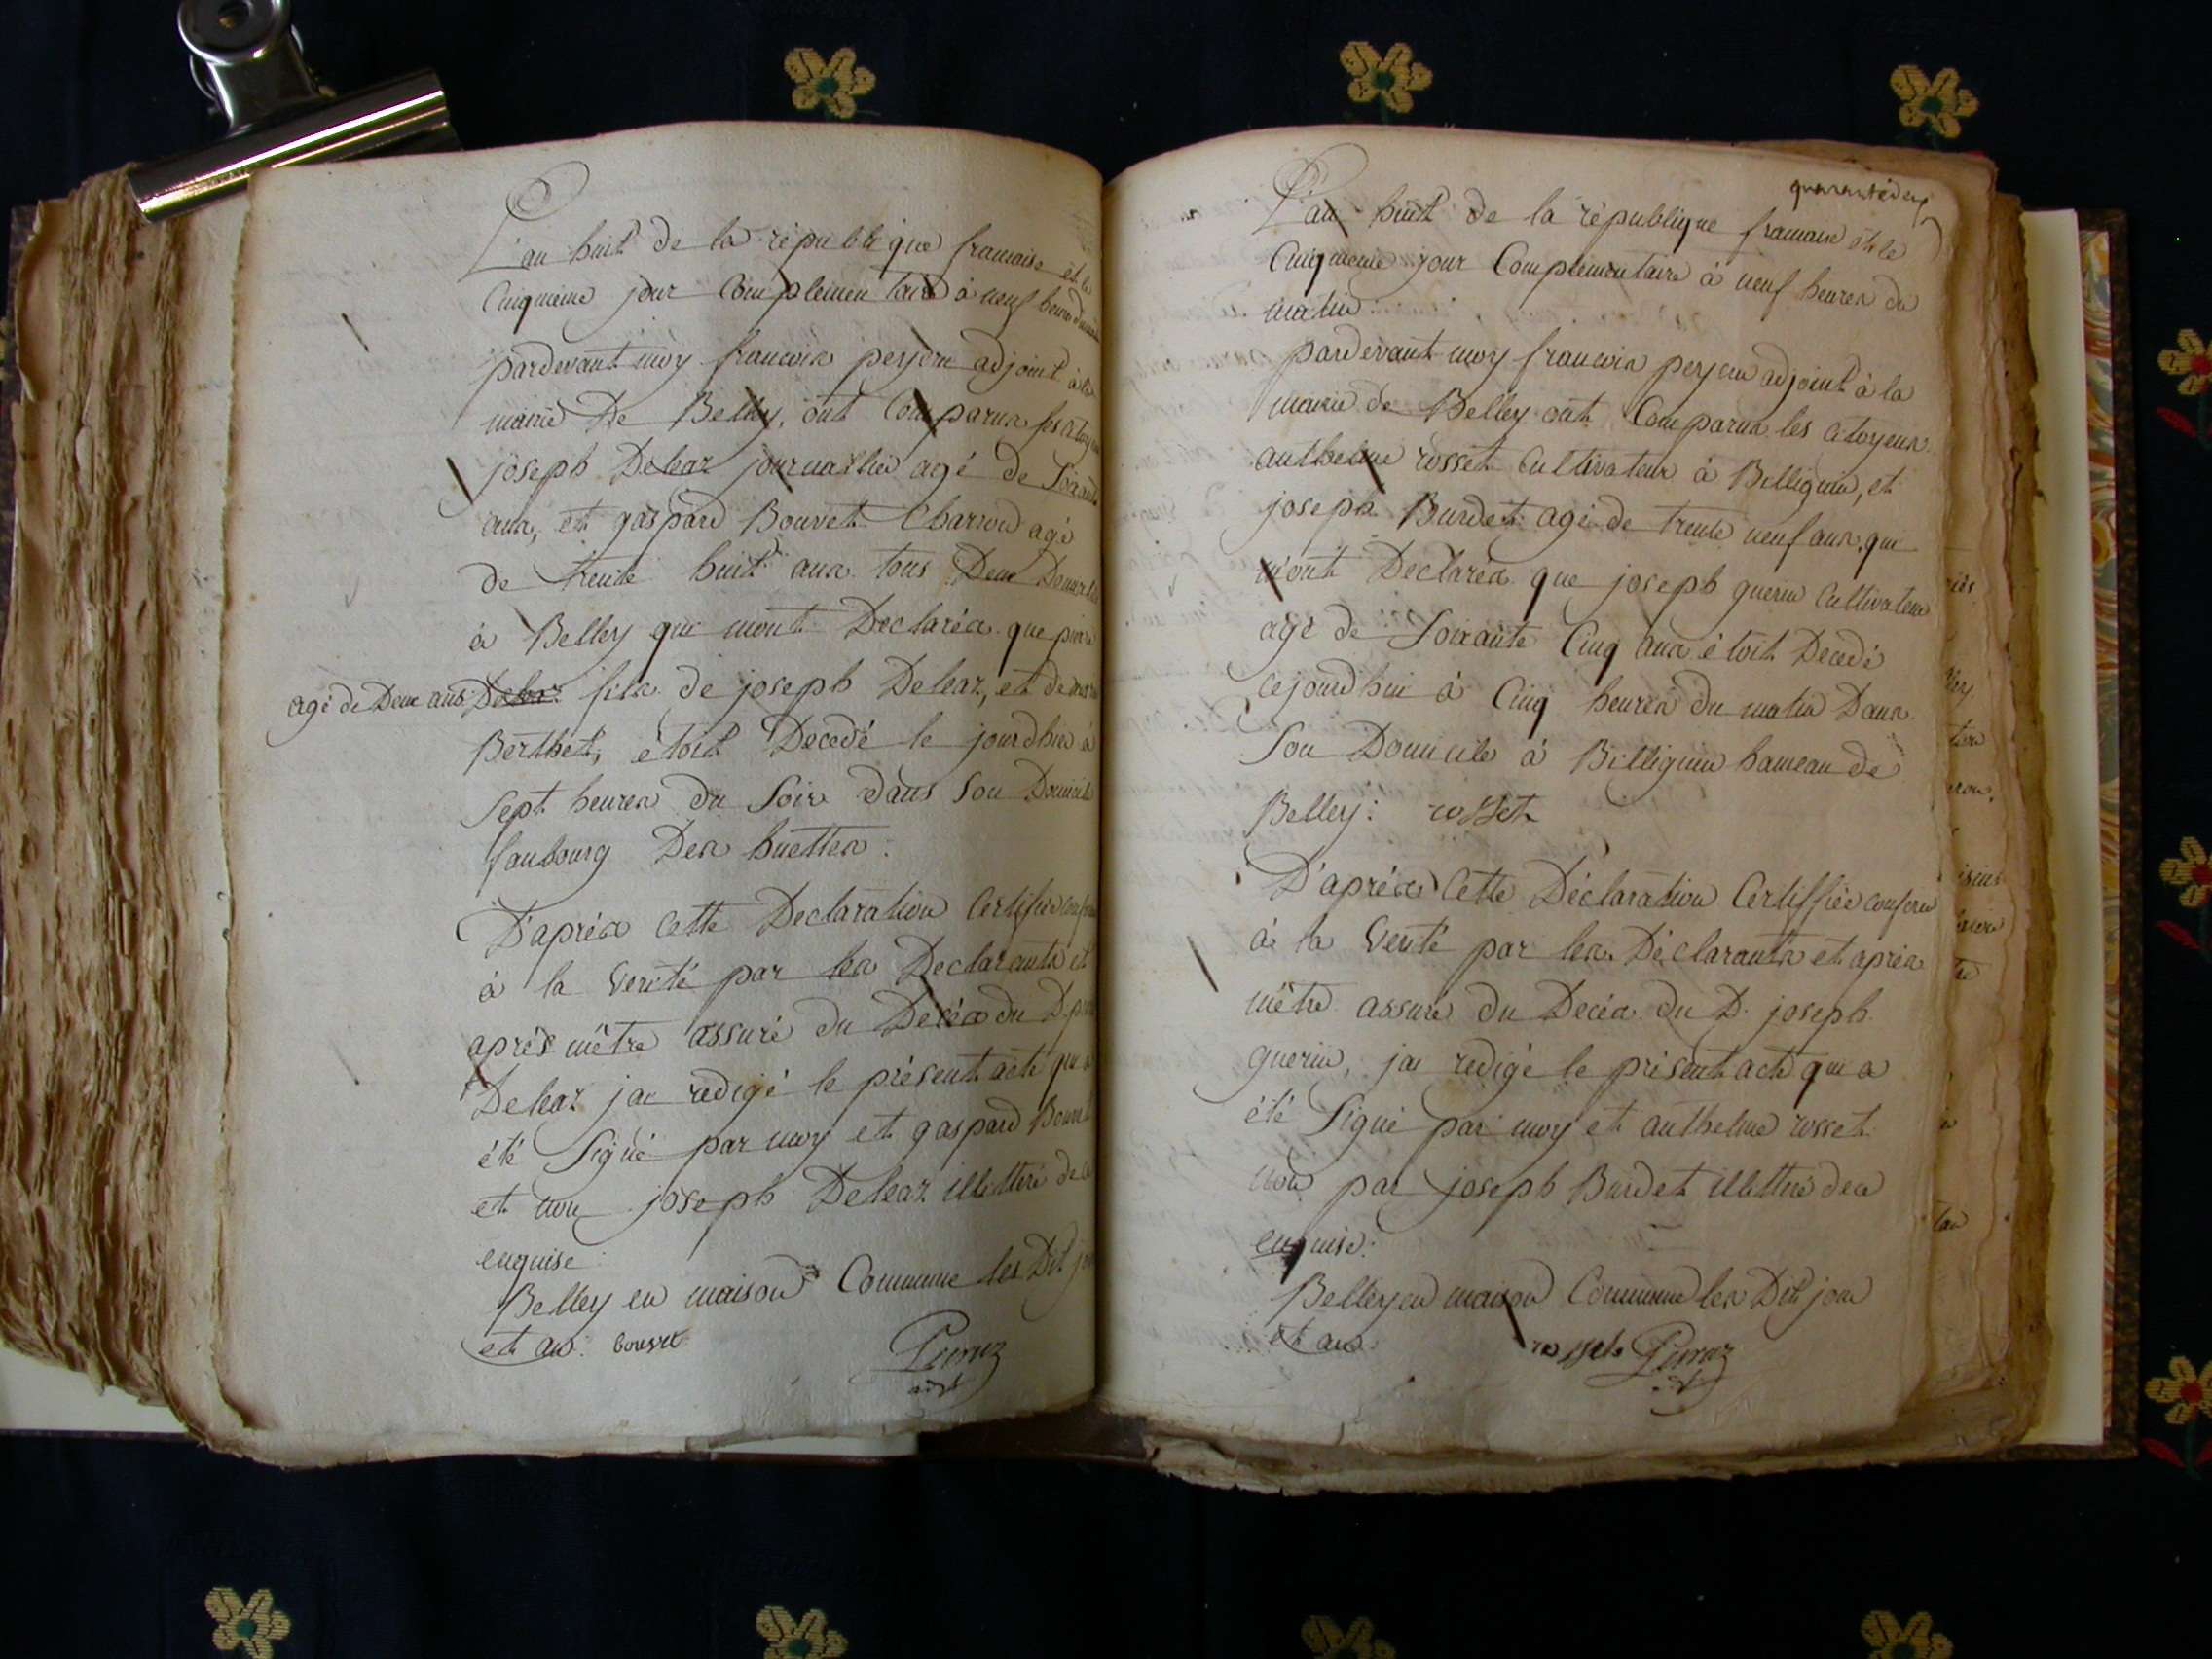 L'an huit de la république francaise et le
Cinquieme jour Complementaire à neuf heures du matin
pardevant moy francois peyseru adjoint à la
mairie De Belley, ont Comparus les citoyens
joseph Deleaz journallier agé de Soixante
ans, et gaspard Bouvet Charron agé
de trente huit ans tous Deux Domiciliés
à Belley qui mont Declarés que pierre
agé de Deux ans Deleaz fils de joseph Deleaz, et de
Berthet, étoit Decedé le jourdhier à
Sept heures du Soir dans Son Domicile
faubourg Des huettes.
D'aprés Cette Declaration Certifiée conforme
à la Verité par les Declarants et
aprés mêtre assuré du Decés du D. pierre
Deleaz jai redigé le présent acte qui a
été Signé par moy et gaspard Bouvet
et non joseph Deleaz illettré de ce
enquise
Belley en maison Commune les Dit jour
et an. bouvet
adjt
quarantédeux
L'an huit de la république francaise et le
Cinquieme jour Complementaire à neuf heures du
matin:
pardevant moy francois peyseru adjoint à la
mairie de Belley ont Comparus les citoyens
anthelme rosset Cultivateur à Billignin, et
joseph Burdet agé de trente neuf ans, qui
m'ont Declarés que joseph guerin Cultivateur
agé de Soixante Cinq ans étoit Decedé
cejourdhui à Cinq heures du matin Dans
Son Domicile à Billignin hameau de
Belley: rosset
D'aprés Cette Déclaration Certiffiée conforme
à la Verité par les Déclarants et aprés
mêtre assuré du Decés du D. joseph
guerin, jai redigé le présent acte qui a
été Signé par moy et anthelme rosset
non par joseph Burdet illettré de ce
enquise:
Belley en maison Commune les Dit jour
et an. rosset